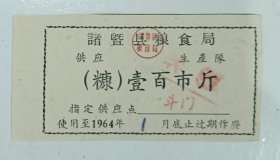 諸暨县粮食局
供应 生產隊
(糠)壹百市斤
指定供应点 斗门
使用至1964年 1 月底止过期作廢